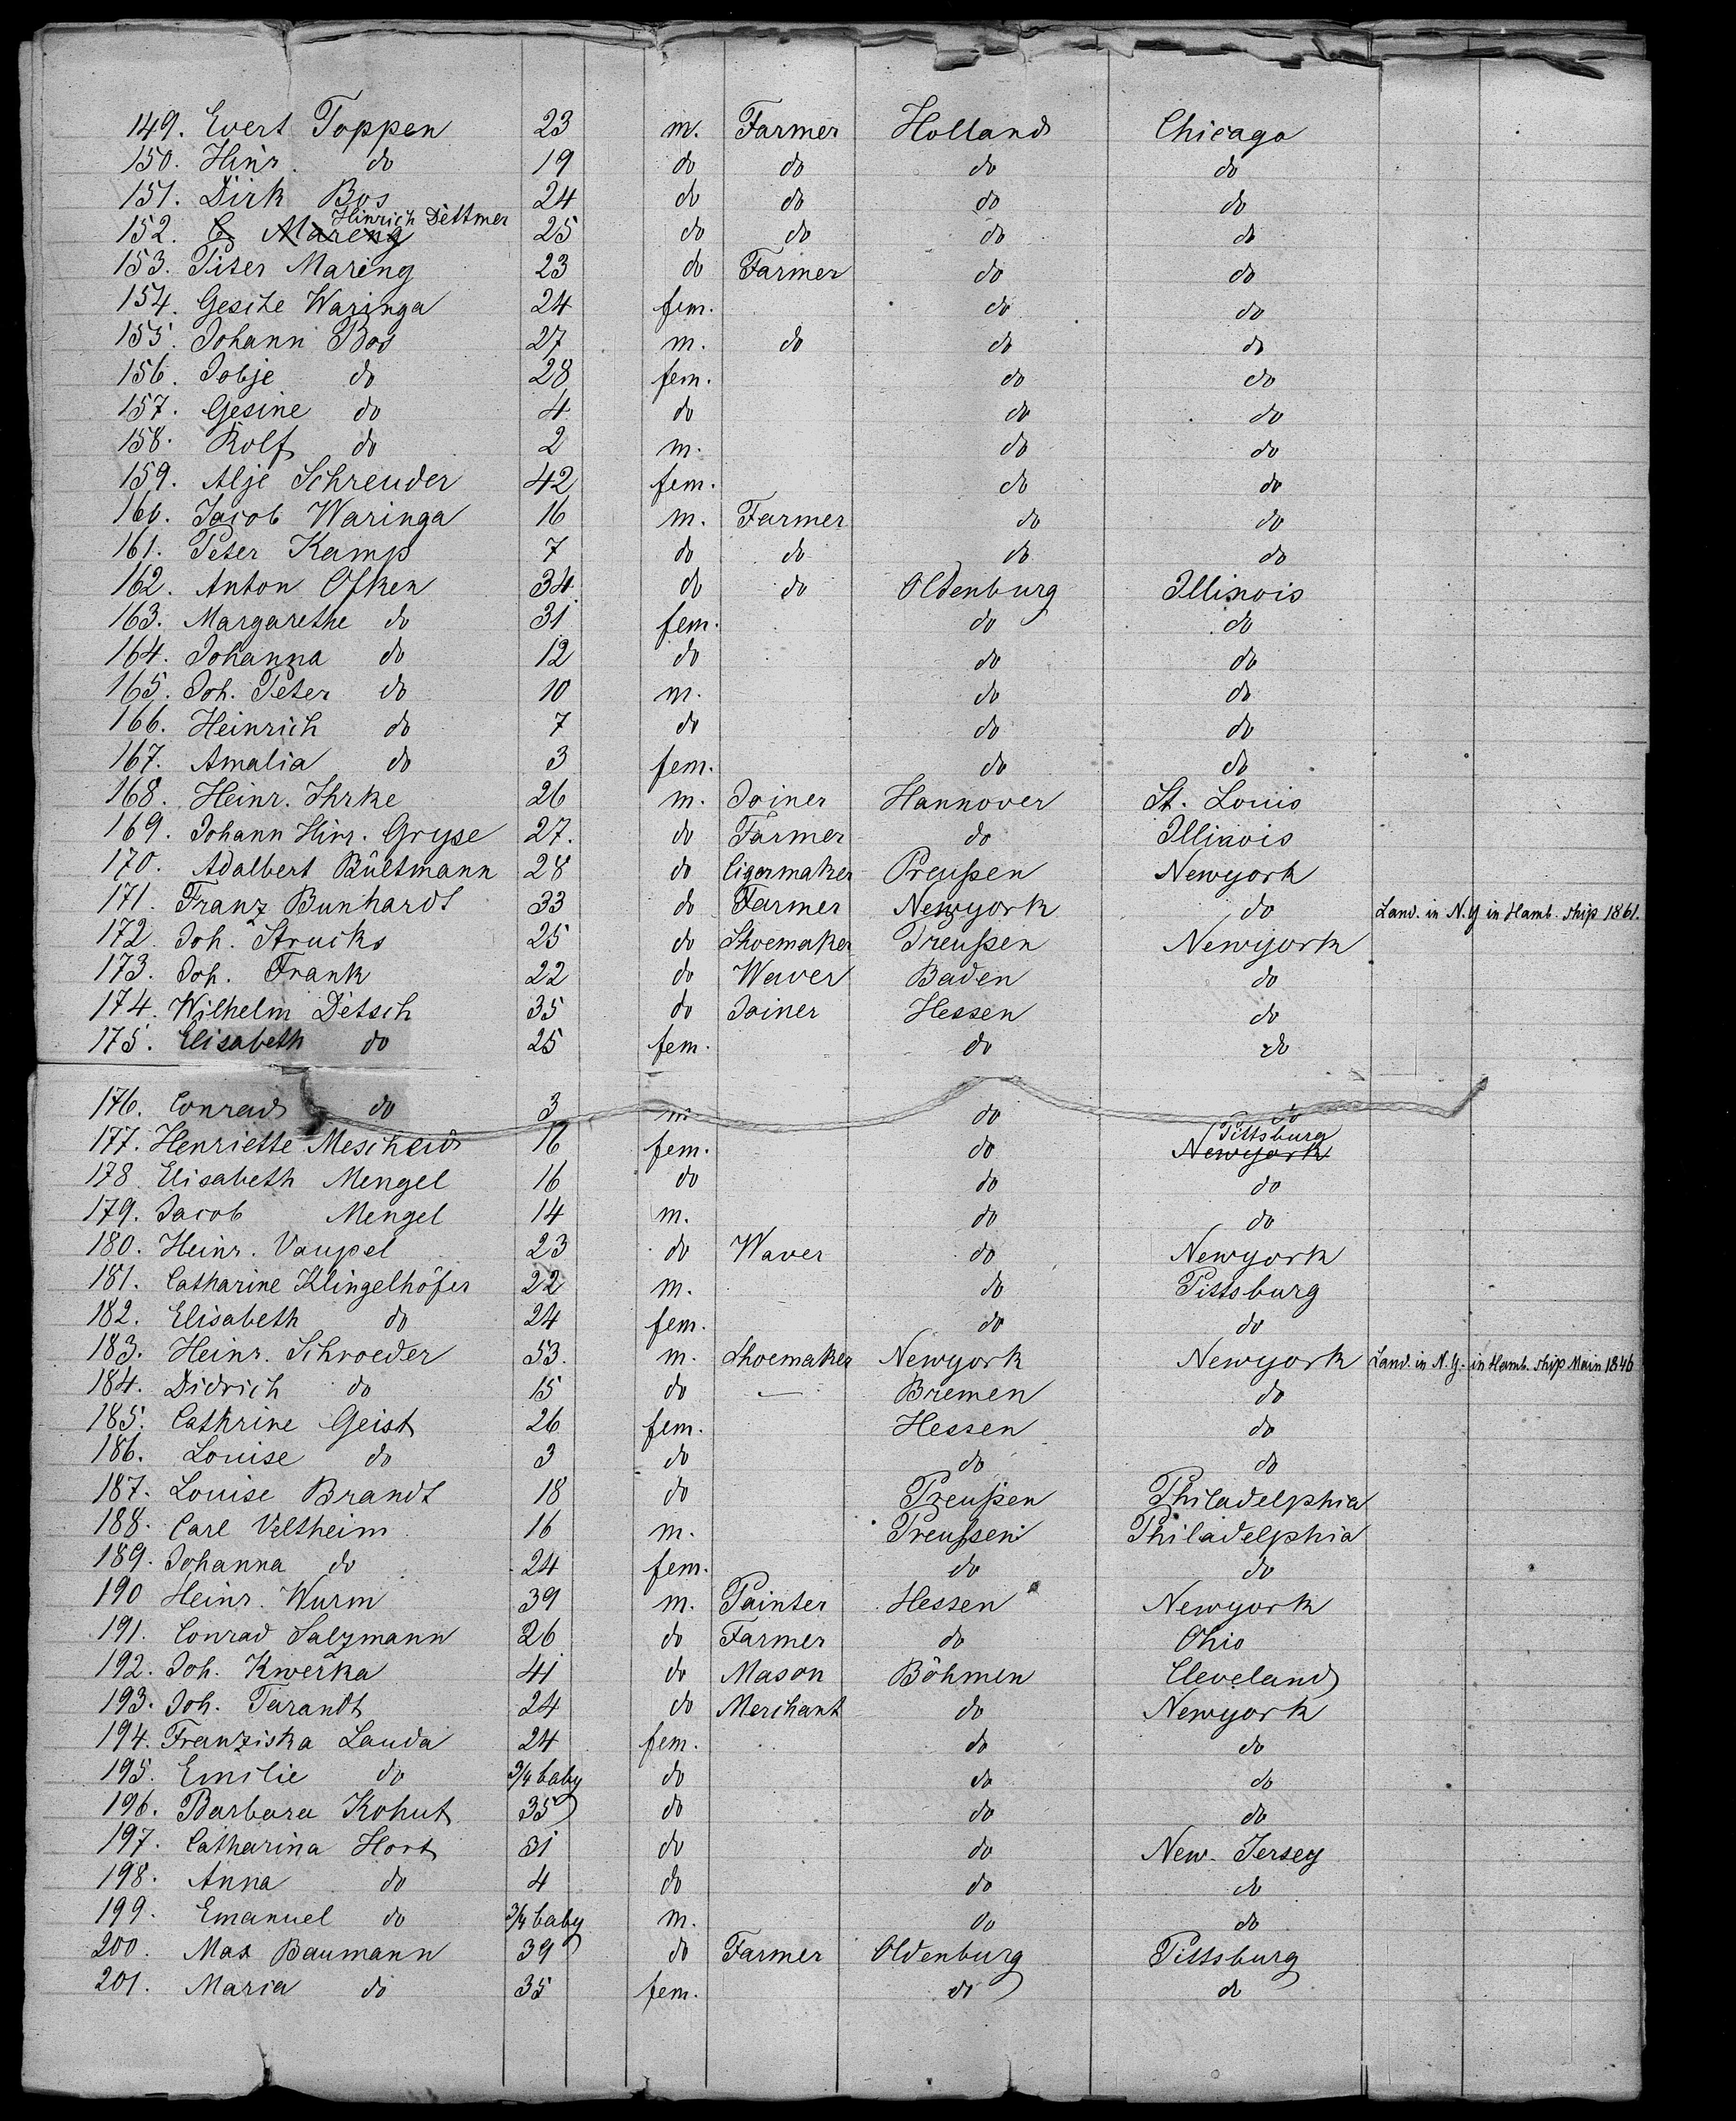 149. Evert Toppen 23 m. Farmer Holland Chicago
150. Hinr. do 19 do do do do
151. Dirk Bos 24 do do do do
Hinrich Dettmer
152. C Mareng 25 do do do do
153. Piter Maring 23 do Farmer do do
154. Gesche Waringa 24 fem. do do
155. Johann Bos 27 m. do do do
156. Jobje do 28 fem. do do
157. Gesine do 4 do do do
158. Rolf do 2 m. do do
159. Alje Schreuder 42 fem. do do
160. Jacob Waringa 16 m. Farmer do do
161. Peter Kamp 7 do do do do
162. Anton Ofken 34 do do Oldenburg Illinois
163. Margarethe do 31 fem. do do
164. Johanna do 12 do do do
165. Joh. Peter do 10 m. do do
166. Heinrich do 7 do do do
167. Amalia do 3 fem. do do
168. Heinr. Ihrke 26 m. Joiner Hannover St. Louis
169. Johann Hinr. Gryse 27. do Farmer do Illinois
170. Adalbert Bültmann 28 do Cigarmaker Preußen Newyork
171. Franz Bunhardt 33 do Farmer Newyork do Land. in N.Y in Hamb. ship 1861.
172. Joh. Strucks 25 do Shoemaker Preußen Newyork
173. Joh. Frank 22 do Waver Baden do
174. Wilhelm Detsch 35 do Joiner Hessen do
175. Elisabeth do 25 fem. do do
176. Conrad do 3 m do do
Pittsburg
177. Henriette Mescheid 16 fem. do Newyork
178 Elisabeth Mengel 16 do do do
179. Jacob Mengel 14 m. do do
180. Heinr. Vaupel 23 do Waver do Newyork
181. Catharine Klingelhöfer 22 m. do Pittsburg
182. Elisabeth do 24 fem. do do
183. Heinr. Schroeder 53. m. Shoemaker Newyork Newyork Land. in N.Y. in Hamb. ship Main 1846
184. Didrich do 15 do — Bremen do
185. Cathrine Geist 26 fem. Hessen do
186. Louise do 3 do do do
187. Louise Brandt 18 do Preußen Philadelphia
188. Carl Veltheim 16 m. Preußen Philadelphia
189. Johanna do 24 fem. do do
190 Heinr. Wurm 39 m. Painter Hessen Newyork
191. Conrad Salzmann 26 do Farmer do Ohio
192. Joh. Kwerka 41 do Mason Böhmen Cleveland
193. Joh. Tarandt 24 do Merchant do Newyork
194. Franziska Lauda 24 fem. do do
195. Emilie do 3/4 baby do do do
196. Barbara Kohut 35 do do do
197. Catharina Hort 31 do do New-Jersey
198. Anna do 4 do do do
199. Emanuel do 3/4 baby m. do do
200. Max Baumann 39 do Farmer Oldenburg Pittsburg
201. Maria do 35 fem. do do